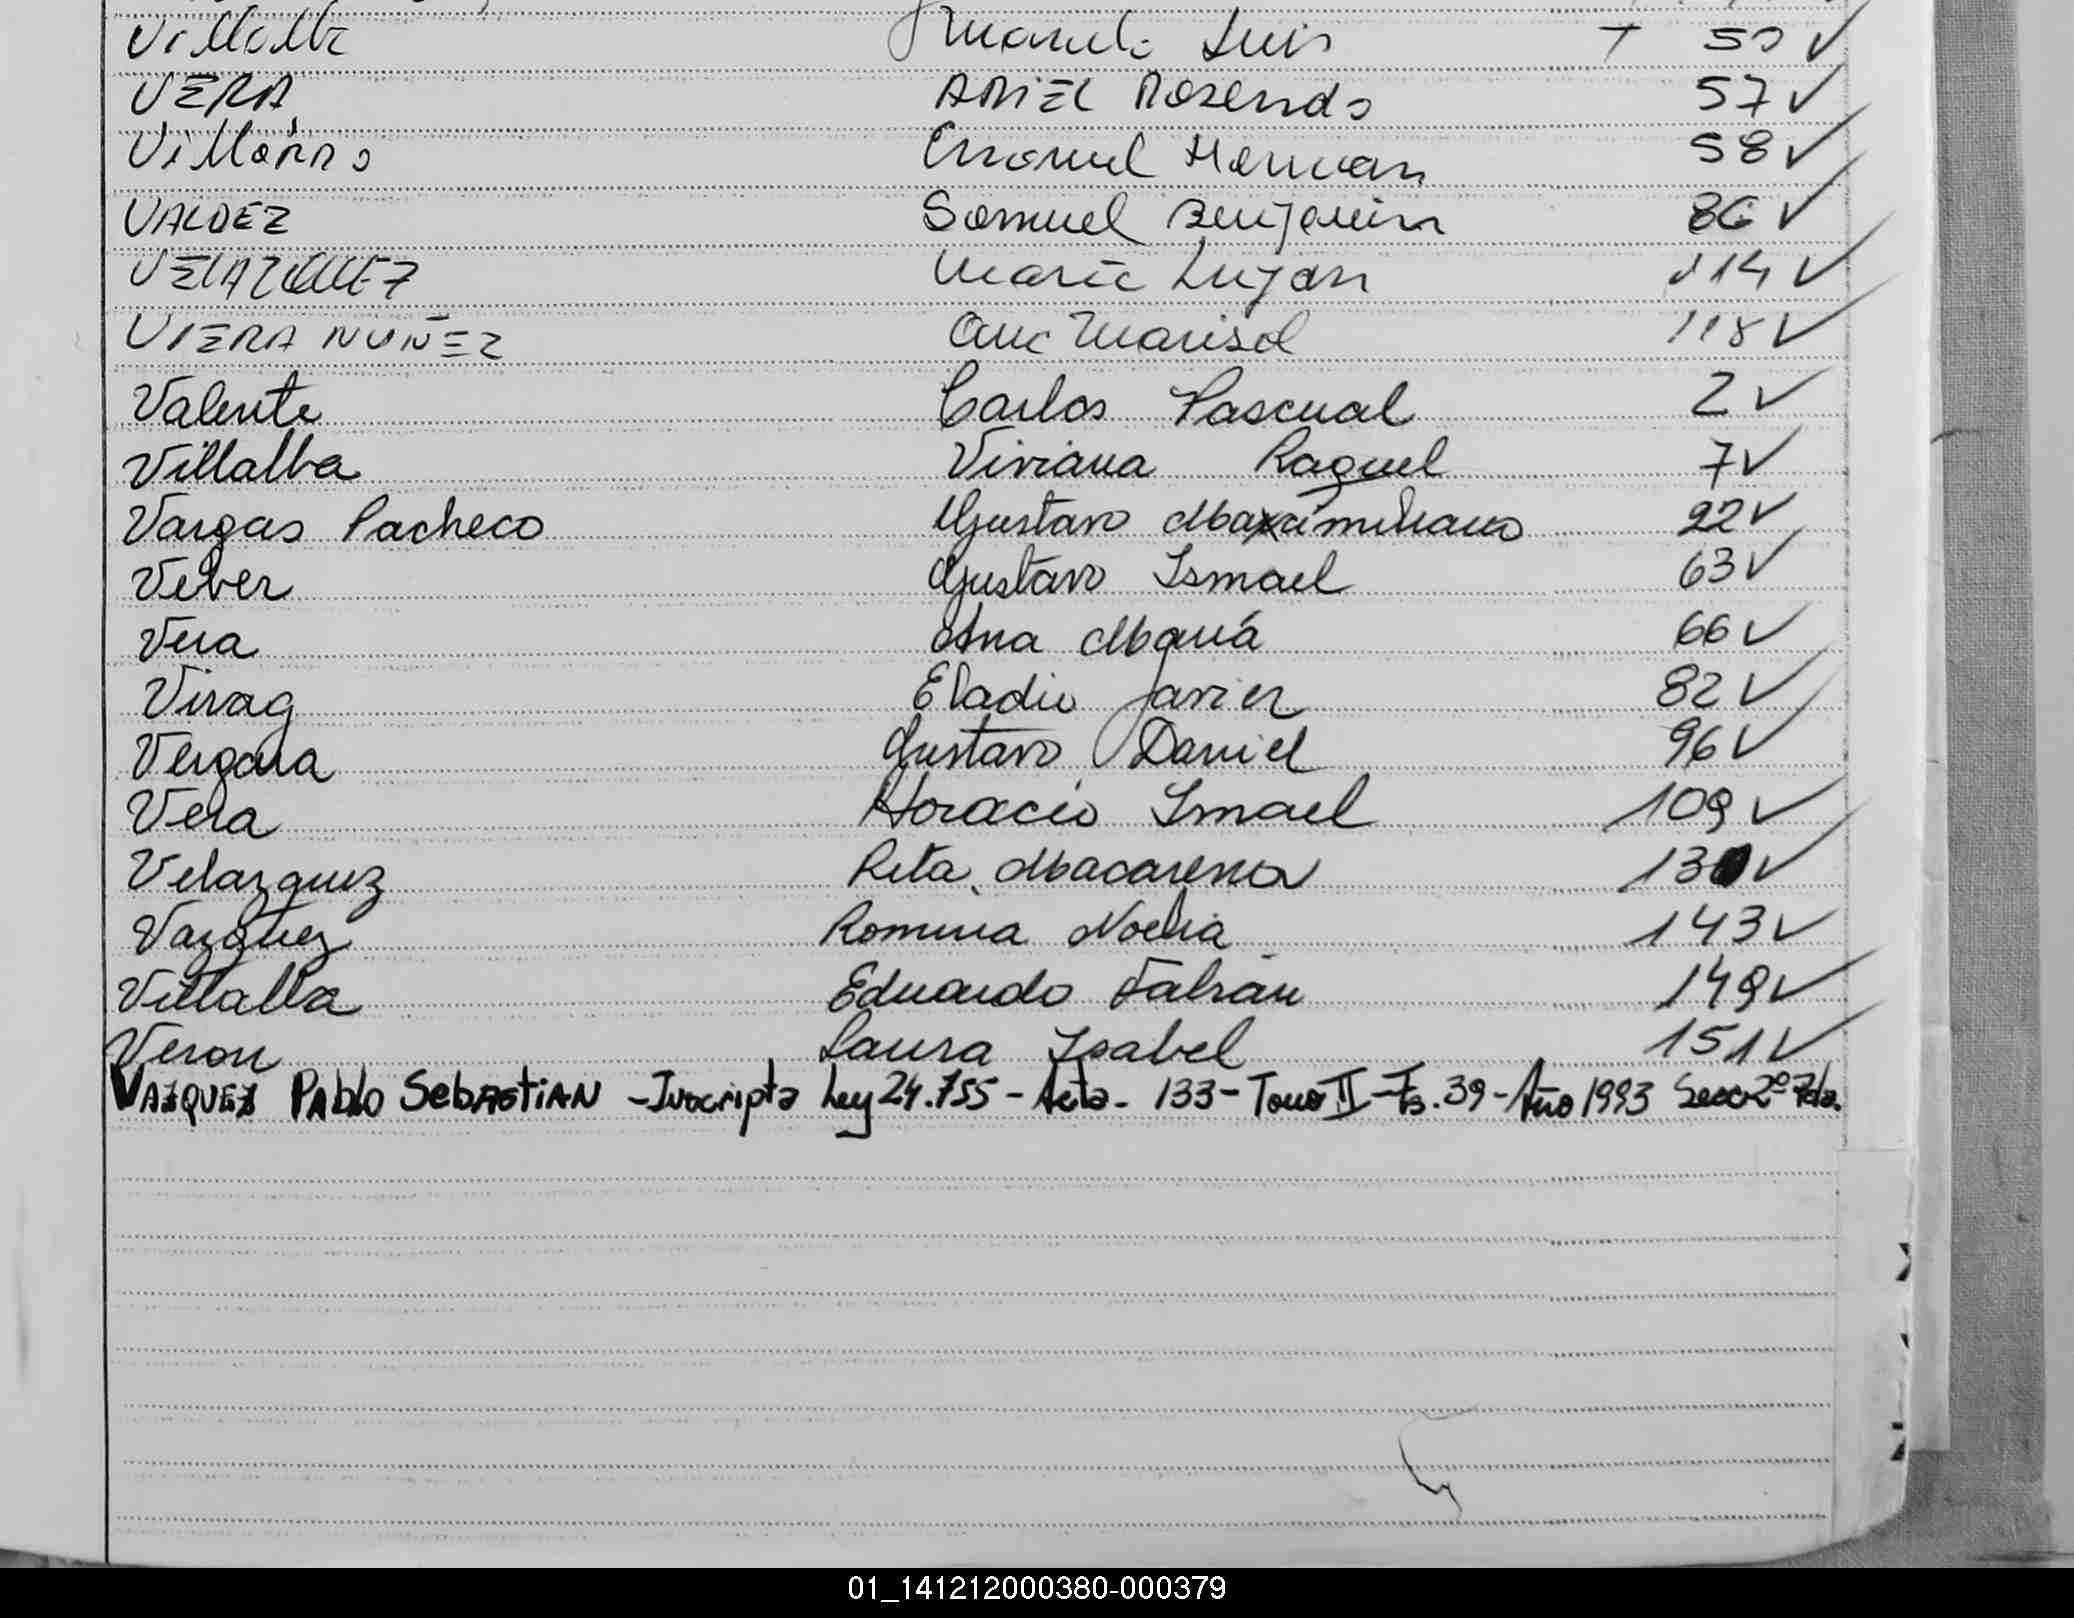 Villalba Luis + 50 ✓
VERA ARIEL Rosendo 57 ✓
Emanuel Hernan 58 ✓
VALDEZ Samuel Benjamin 86 ✓
VELAZQUEZ Maria Lujan 114 ✓
VIERA NUÑEZ Ana Marisol 118 ✓
Valente Carlos Pascual 2 ✓
Villalba Viviana Raquel 7 ✓
Vargas Pacheco Gustavo Maximiliano 22 ✓
Veber Gustavo Ismael 63 ✓
Vera Ana María 66 ✓
Virag Eladio Javier 82 ✓
Vergara Gustavo Daniel 96 ✓
Vera Horacio Ismael 109 ✓
Velazquez Rita Macarena 130 ✓
Vazquez Romina Noelia 143 ✓
Villalba Eduardo Fabián 149 ✓
Veron Laura Isabel 151 ✓
VAZQUEZ PAblo SebAStiAN - Inscripta Ley 24.755 - Acta - 133 - Tomo II - Fs. 39 - Año 1993 Secc 2º
01_141212000380-000379